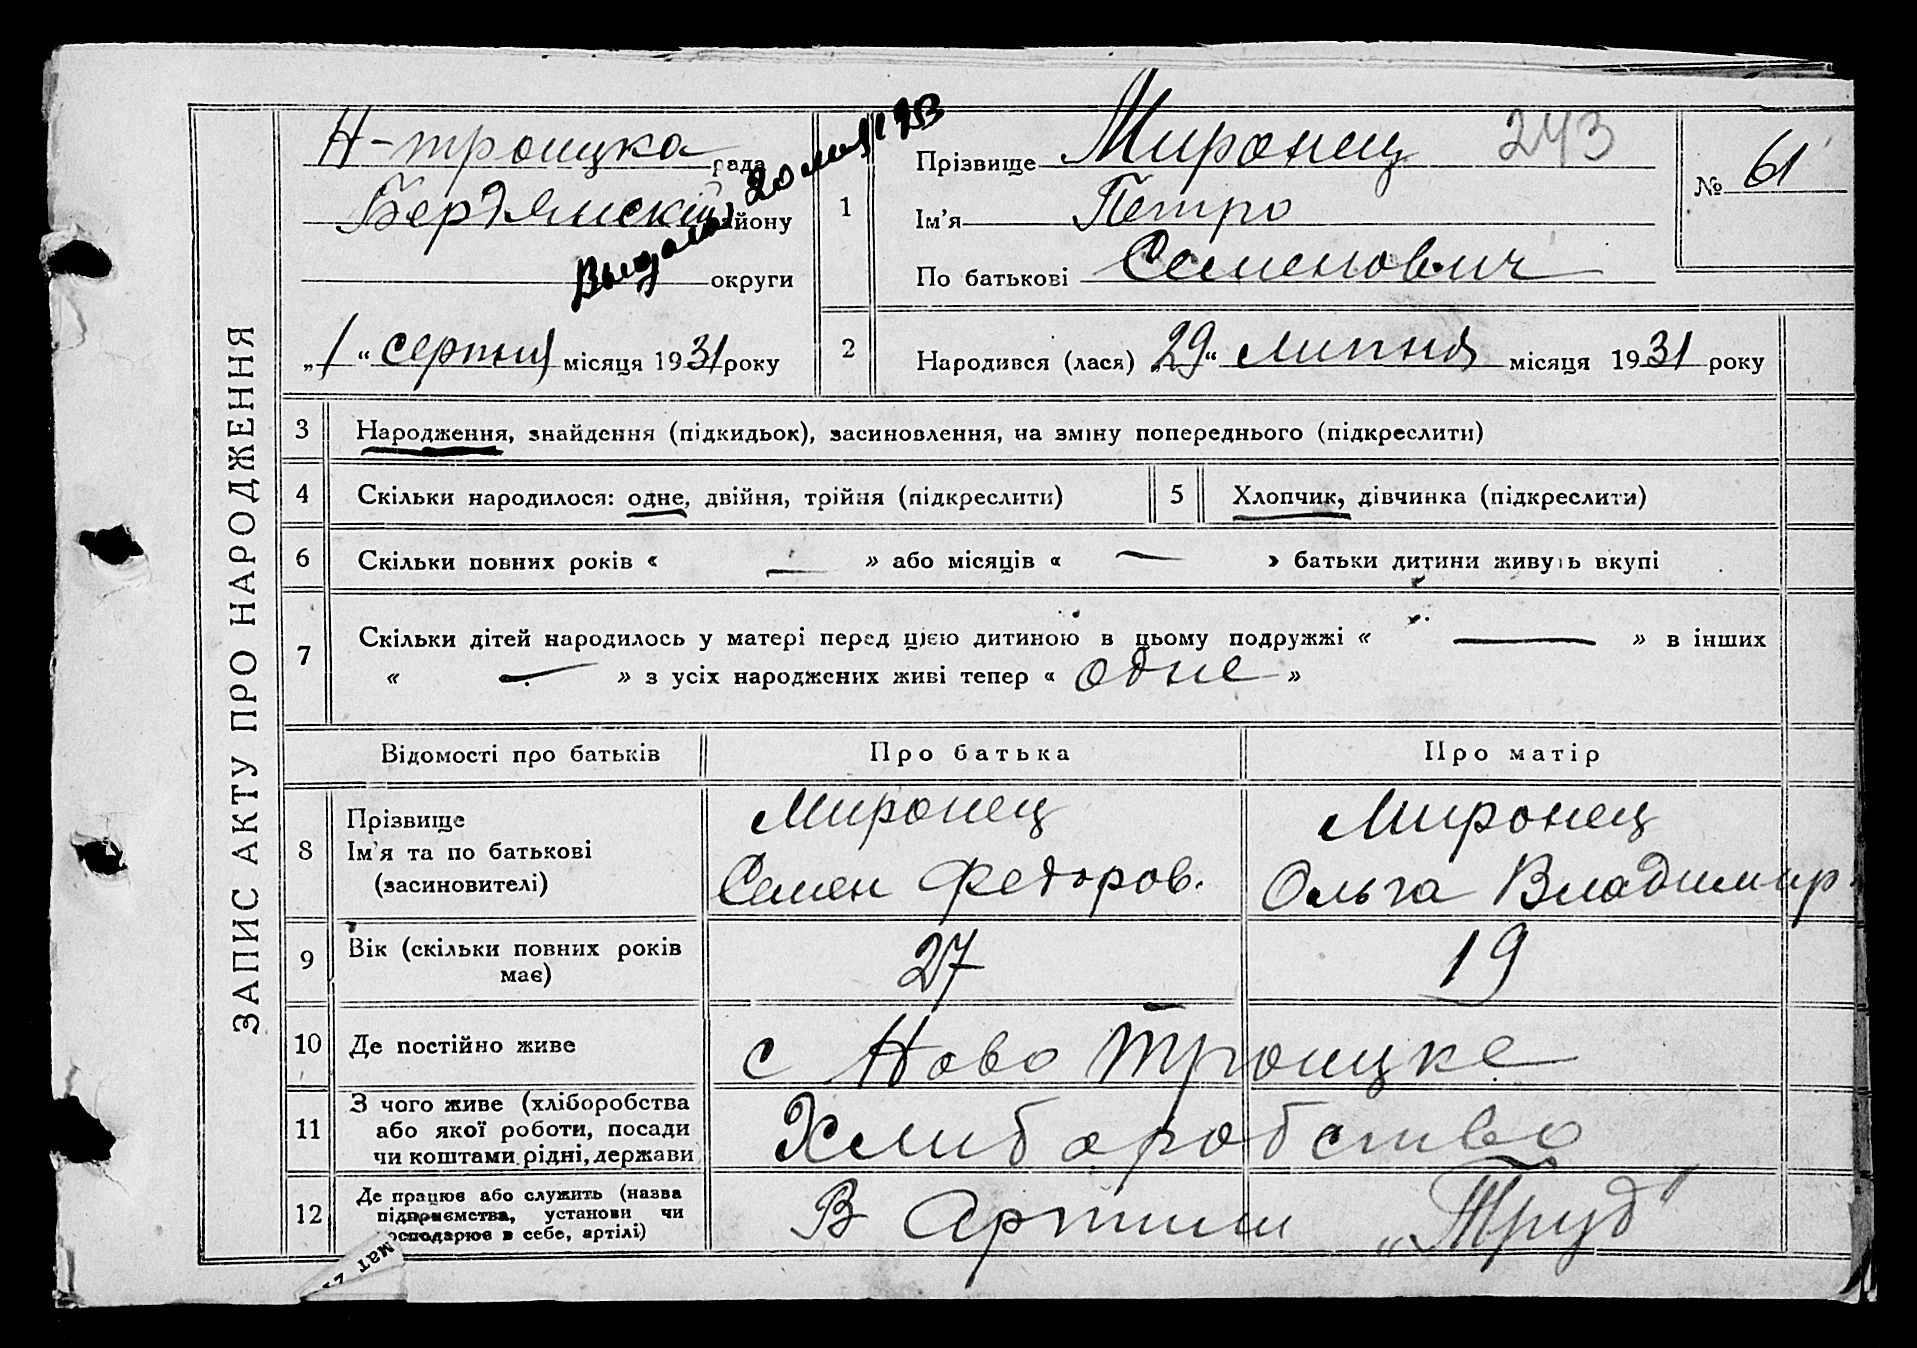 ЗАПИС АКТУ ПРО НАРОДЖЕННЯ
Н-троицка рада
Бердянский району
округи
20 мая
„1“ серпня місяця 1931 року
1
Прізвище Миронец
243
Ім’я Петро
По батькові Семенович
№ 61
2
Народився (лася) „29“ липня місяця 1931 року
3 Народження, знайдення (підкидьок), засиновлення, на зміну попереднього (підкреслити)
4 Скільки народилося: одне, двійня, трійня (підкреслити)
5 Хлопчик, дівчинка (підкреслити)
6 Скільки повних років « — » або місяців « — » батьки дитини живуть вкупі
7 Скільки дітей народилось у матері перед цією дитиною в цьому подружжі « — » в інших
« — » з усіх народжених живі тепер « одне »
Відомості про батьків Про батька Про матір
8 Прізвище Ім’я та по батькові (засиновителі)
Миронец Миронец
Семен Федоров. Ольга Владимир.
9 Вік (скільки повних років має) 27 19
10 Де постійно живе с Ново Троицке
11 З чого живе (хліборобства або якої роботи, посади чи коштами рідні, держави
Хлиборобство
12 Де працює або служить (назва підприємства, установи чи господарює в себе, артілі)
В Артили „Труд"
мат